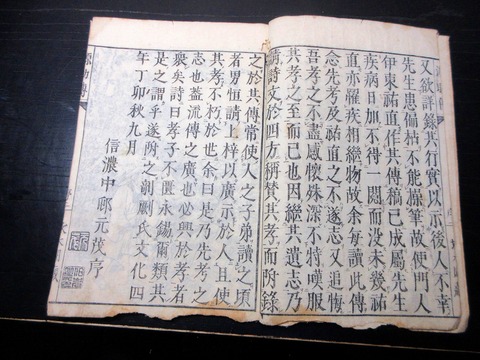 又欲詳錄其行實以示後人不幸
先生患偏枯不能操筆故使門人
伊東祐直作其傳稿已成屬先生
疾病日加不得一閱而没未幾祐
直亦罹疾相繼物故余每讀此傳
念先考及祐直之不遂志又追悔
吾孝之不盡感懷殊深不特嘆服
其孝之至而已也因繼其遺志乃
請詩文於四方稱賛其孝而附錄
之於其傳常使人之子弟讀之頃
者男恒請上梓以廣示於人且使
其孝不朽於世余曰是乃先考之
志也蓋流傳之廣也必興於孝者
衆矣詩曰孝子不匱永錫爾類其
是之謂乎遂附之剞劂氏文化四
年丁卯秋九月
信濃中邨元茂序